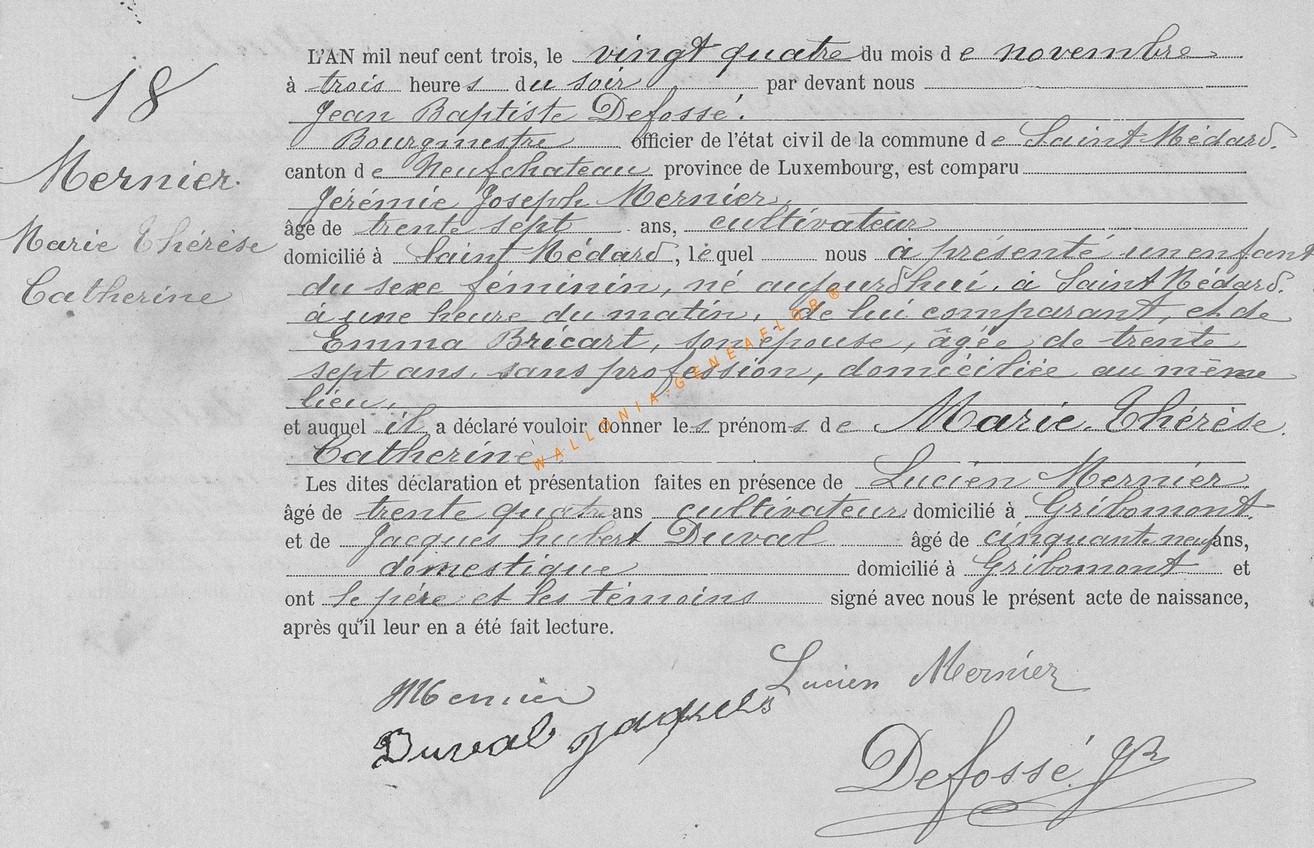 18
Mernier
Marie Thérèse
Catherine
L'AN mil neuf cent trois, le vingt quatre du mois de novembre
à trois heures du soir par devant nous
Jean Baptiste Defossé.
Bourgmestre officier de l'état civil de la commune de Saint Médard.
canton de Neufchateau province de Luxembourg, est comparu
Jérémie Joseph Mernier,
âgé de trente sept ans, cultivateur
domicilié à Saint Médard, lequel nous à présenté un enfant
du sexe féminin, né aujourd'hui, à Saint Médard.
à une heure du matin, de lui comparant, et de
Emma Bricart, son épouse, âgée de trente
sept ans, sans profession, domiciliée au même
lieu,
et auquel il a déclaré vouloir donner les prénoms de Marie Thérèse.
Catherine.
Les dites déclaration et présentation faites en présence de Lucien Mernier
âgé de trente quatre ans cultivateur domicilié à Gribomont.
et de Jacques hubert Duval âgé de cinquante neuf ans,
domestique domicilié à Gribomont et
ont le père et les témoins signé avec nous le présent acte de naissance,
après qu'il leur en a été fait lecture.
Mernier
Lucien Mernier
Duval jacques
Defossé JB
WALLONIA-GENEAFLOR®